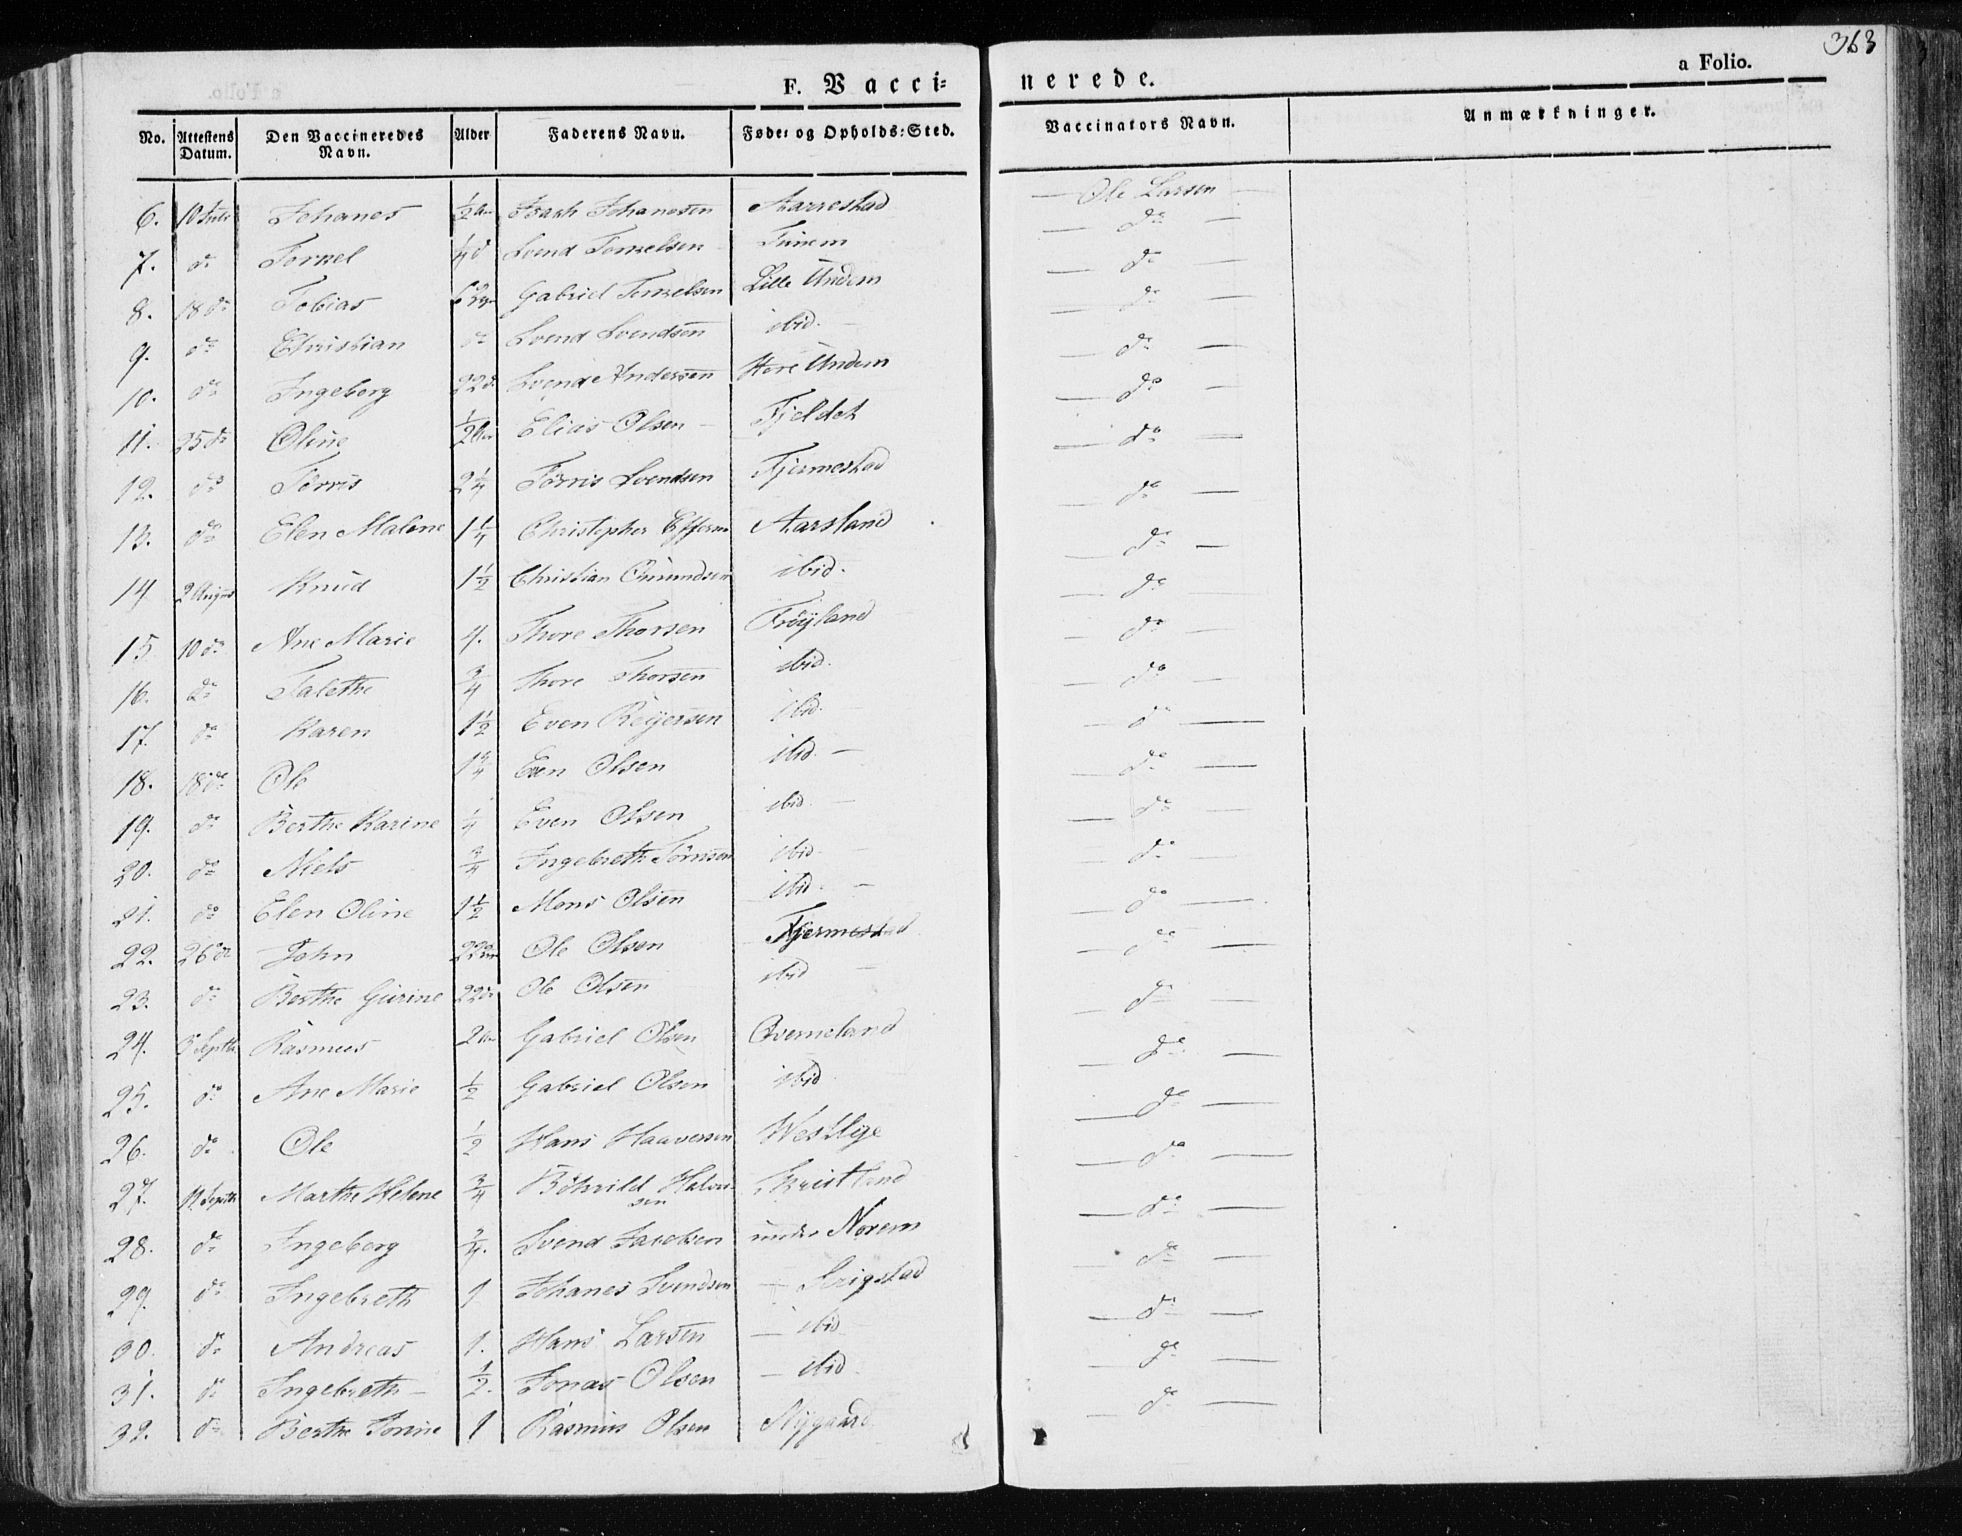 363
a Folio.
F. Vacci= nerede.
No. | Attestens Datum. | Den Vaccineredes Navn. | Alder | Faderens Navn. | Føde= og Opholds=Sted. | Vaccinators Navn. | Anmærkninger.
6. 10 Juli Johanes 1/2 Isach Johanesen Aarrestad — Ole Larsen —
7. do Torkel 1/4 d Svend Torkelsen Tunem — do —
8. 18 do Tobias Gabriel Torkelsen Lille Undem — do —
9. do Christian do Svend Svendsen ibid. — do —
10. do Ingeborg 22 d. Svend Andersen Store Undem — do —
11. 25 do Oline 1/2 Elias Olsen — Fjeldet — do —
12. do Tørris 2 1/4 Tørris Svendsen Fjermestad — do —
13. do Elen Malene 1 1/4 Christopher Aarsland — do —
14 2 August Knud 1 1/2 Christian Omundsen ibid. — do —
15 10 do Ane Marie 4. Thore Thorsen Frøyland — do —
16. do Talethe 3/4 Thore Thorsen ibid. — do —
17. do Karen 1 1/2 Even Reijersen ibid. — do —
18. 18 do Ole 1 3/4 Even Olsen ibid. — do —
19. do Berthe Karine 1/4 Even Olsen ibid. — do —
20. do Niels 3/4 Ingebreth Tørrisen ibid. — do —
21. do Elen Oline 1 1/2 Mons Olsen ibid. — do —
22. 26 do John Ole Olsen Fjermestad — do —
23. do Berthe Gurine 22 d. Ole Olsen ibid — do —
24. 3 Septbr Rasmus 2 Gabriel Olsen Qverneland — do —
25. do Ane Marie 1/2 Gabriel Olsen ibid — do —
26. do Ole 1/2 Hans Haaversen Westlye — do —
27. 11 Septbr Marthe Helene 3/4 Bøhrild Halvorsen — do —
28. do Ingeborg 3/4. Svend Jacobsen under Norem — do —
29. do Ingebreth 1 Johanes Svendsen — Serigstad — do —
30. do Andreas 1. Hans Larsen — ibid — do —
31. do Ingebreth — 1/2. Jonas Olsen — ibid — do —
32. do Berthe Torine 1 Rasmus Olsen Nygaard — do —